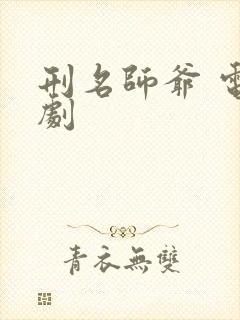 刑名師爺
劇
青衣無雙